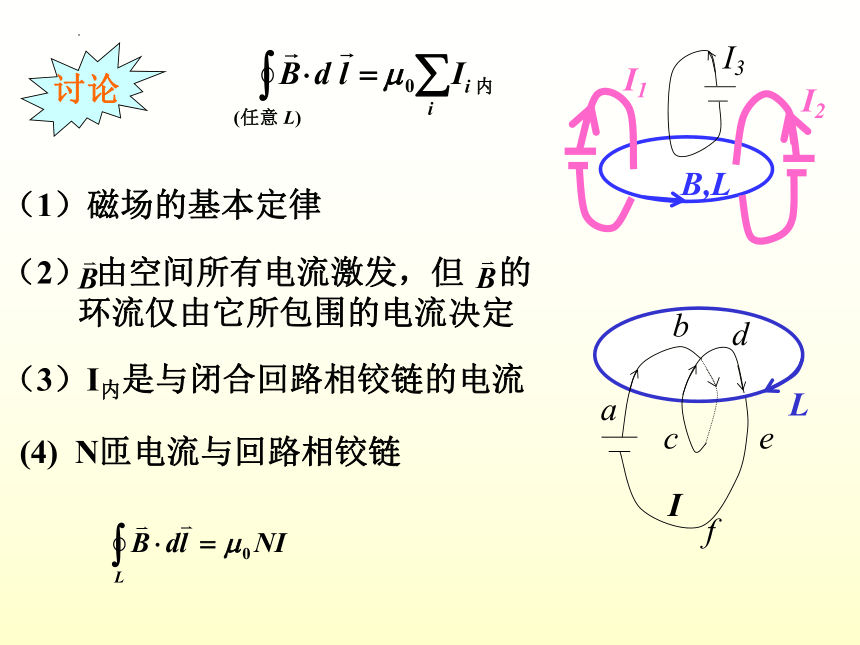 讨论
∮ B⃗·d l⃗ = μ₀ ∑ Iᵢ 内
(任意 L)
i
I₃
I₁
I₂
B,L
(1)磁场的基本定律
(2)B⃗由空间所有电流激发，但 B⃗ 的
环流仅由它所包围的电流决定
(3)I内是与闭合回路相铰链的电流
(4) N匝电流与回路相铰链
∮ B⃗·dl⃗ = μ₀ NI
L
b
d
a
L
c
e
I
f